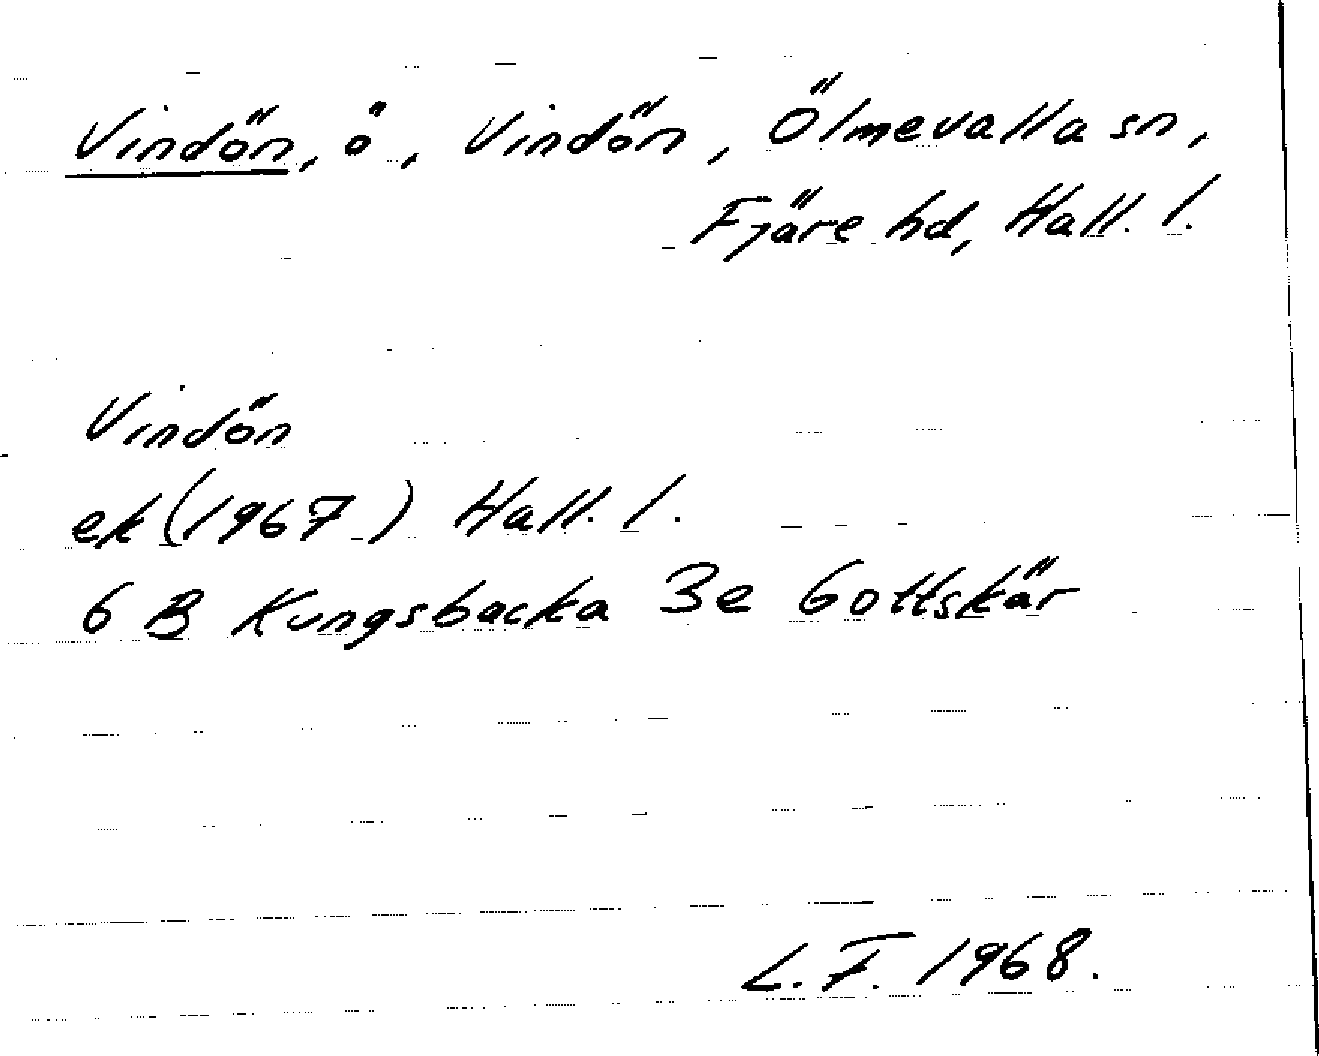 Vindön, ö, Vindön, Ölmevalla sn,
Fjäre hd, Hall. l.
Vindön
ek (1967) Hall. l.
6 B Kungsbacka 3e Gottskär
L.F. 1968.